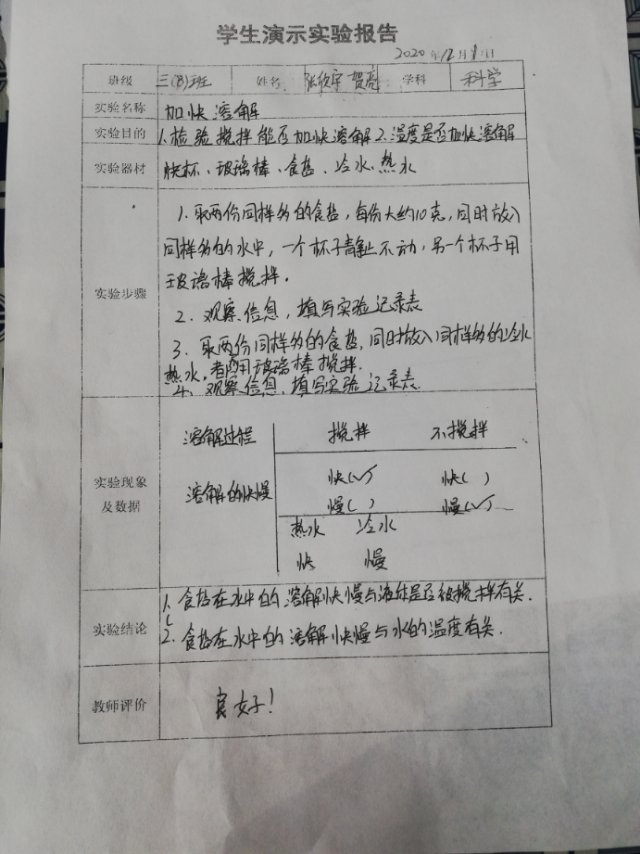 学生演示实验报告
2020年12月1日
班级 三(8)班 姓名 张欣宇 贺 学科 科学
实验名称 加快溶解
实验目的 1.检验搅拌能否加快溶解2.温度是否加快溶解
实验器材 烧杯、玻璃棒、食盐、冷水、热水
实验步骤
1.取两份同样多的食盐,每份大约10克,同时放入
同样多的水中,一个杯子静止不动,另一个杯子用
玻璃棒搅拌.
2.观察信息,填写实验记录表
3.取两份同样多的食盐,同时放入同样多的冷水
热水,都用玻璃棒搅拌.
4.观察信息.填写实验记录表
实验现象
及数据
溶解过程 搅拌 不搅拌
溶解的快慢 快(√) 快( )
慢( ) 慢(√)
热水 冷水
快 慢
实验结论
1.食盐在水中的溶解快慢与液体是否被搅拌有关.
2.食盐在水中的溶解快慢与水的温度有关.
教师评价 良好!